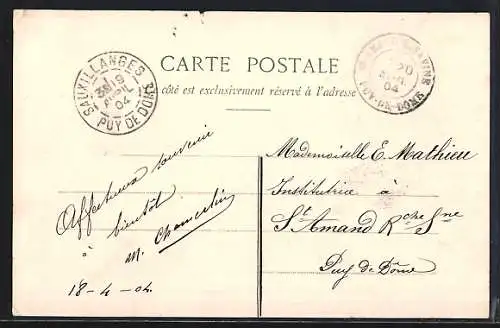 CARTE POSTALE
côté est exclusivement réservé à l'adresse
SAUXILLANGES
3E 19
AVRIL
04
PUY DE DOME
20
04
PUY-DE-DOME
Affectueux souvenir
à bientôt
M.
18-4-04
Mademoiselle E. Mathieu
Institutrice à
St Amand Roche Sne
Puy de Dôme